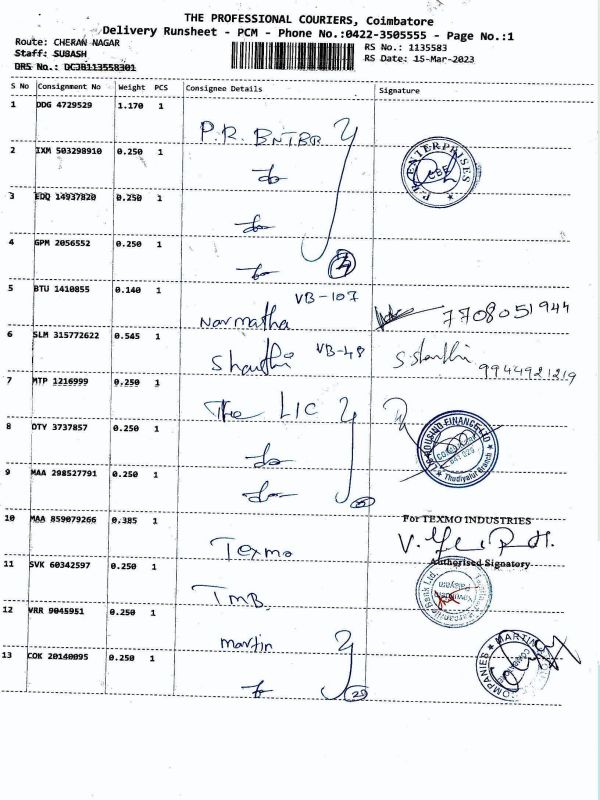 THE PROFESSIONAL COURIERS, Coimbatore
Delivery Runsheet - PCM - Phone No.:0422-3505555 - Page No.:1
Route: CHERAN NAGAR
Staff: SUBASH
DRS No.: DCJB113558301
RS No.: 1135583
RS Date: 15-Mar-2023
S No Consignment No Weight PCS Consignee Details Signature
1 DDG 4729529 1.170 1
P.R. ENTER
2 IXM 503298910 0.250 1
do
P.R. ENTERPRISES CBE
3 EDQ 14937820 0.250 1
do
4 GPM 2056552 0.250 1
do 4
5 BTU 1410855 0.140 1
VB-107
Narmatha 7708051944
6 SLM 315772622 0.545 1
Shanthi VB-48 S. Shanthi 9944921219
7 MTP 1216999 0.250 1
The LIC
8 DTY 3737857 0.250 1
do
LIC HOUSING FINANCE LTD Thudiyalur Branch
9 MAA 298527791 0.250 1
do
10 MAA 859079266 0.385 1
Texmo
For TEXMO INDUSTRIES
Authorised Signatory
11 SVK 60342597 0.250 1
TMB
12 VRR 9045951 0.250 1
martin
13 COK 20140095 0.250 1
do
MARTIN COMPANIES